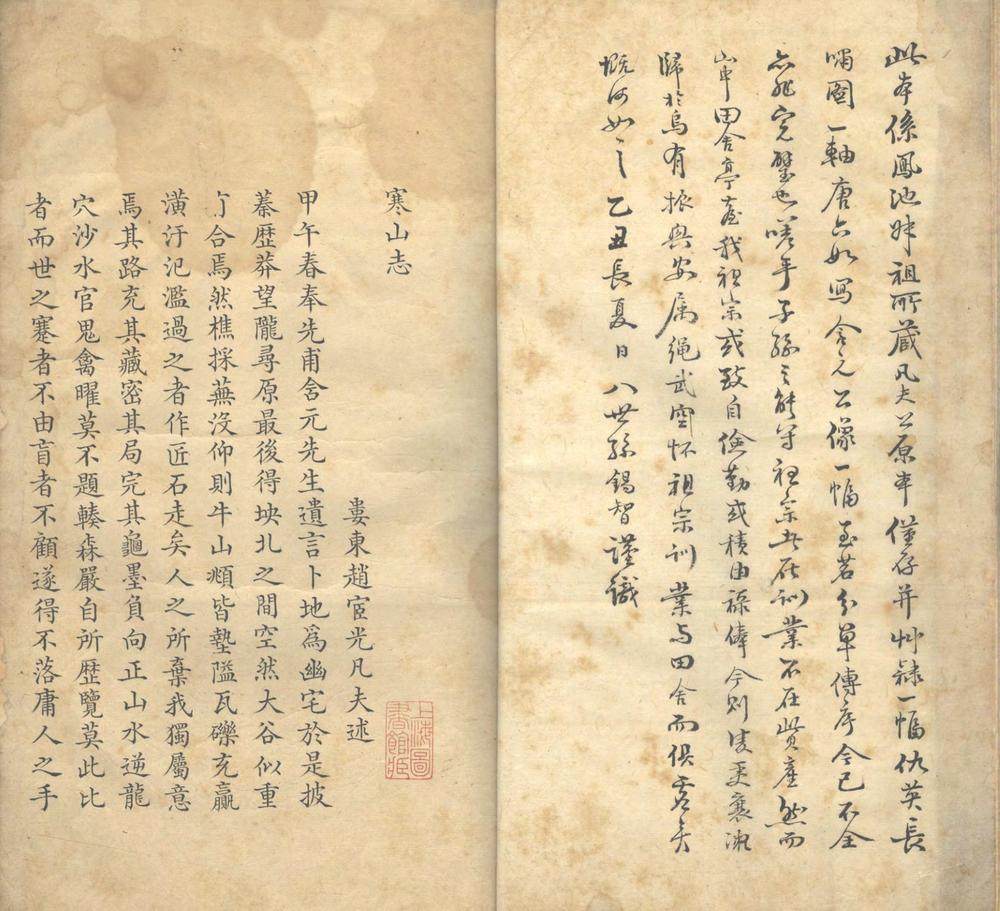 此本係鳳池妹祖所藏凡夫公原本僅存并艸祿一幅仇英長
嘯圖一軸唐六如寫含元公像一幅至若分單傳序今已不全
亦非完璧也嗟乎子孫之能守祖宗者在訓業不在貲產然而
山中田舍亭臺我祖宗或致自儉勤或積由祿俸今則淩夷衰渺
歸於烏有振興安屬繩武空懷祖宗訓業与田舍而俱零矣
慨何如之乙丑長夏日八世孫錫智謹識
寒山志
婁東趙宧光凡夫述
甲午春奉先甫含元先生遺言卜地爲幽宅於是披
蓁歷莽望隴尋原最後得坱北之間空然大谷似重
丁合焉然樵採蕪沒仰則牛山頫皆墊隘瓦礫充羸
潢汙汜濫過之者作匠石走矣人之所棄我獨屬意
焉其路充其藏密其局完其龜墨負向正山水逆龍
穴沙水官鬼禽曜莫不題輳森嚴自所歷覽莫此比
者而世之蹇者不由盲者不顧遂得不落庸人之手
上海圖書館藏